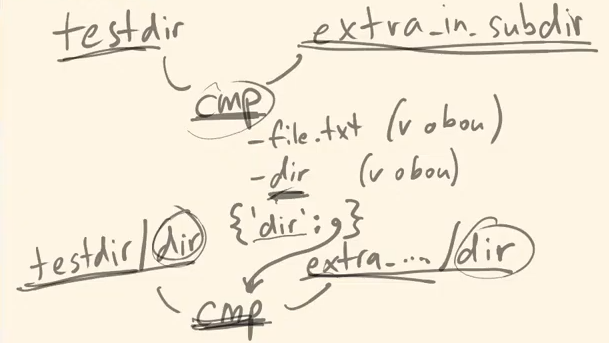 testdir extra_in_subdir
cmp
-file.txt (v obou)
-dir (v obou)
{'dir': }
testdir/dir extra_.../dir
cmp